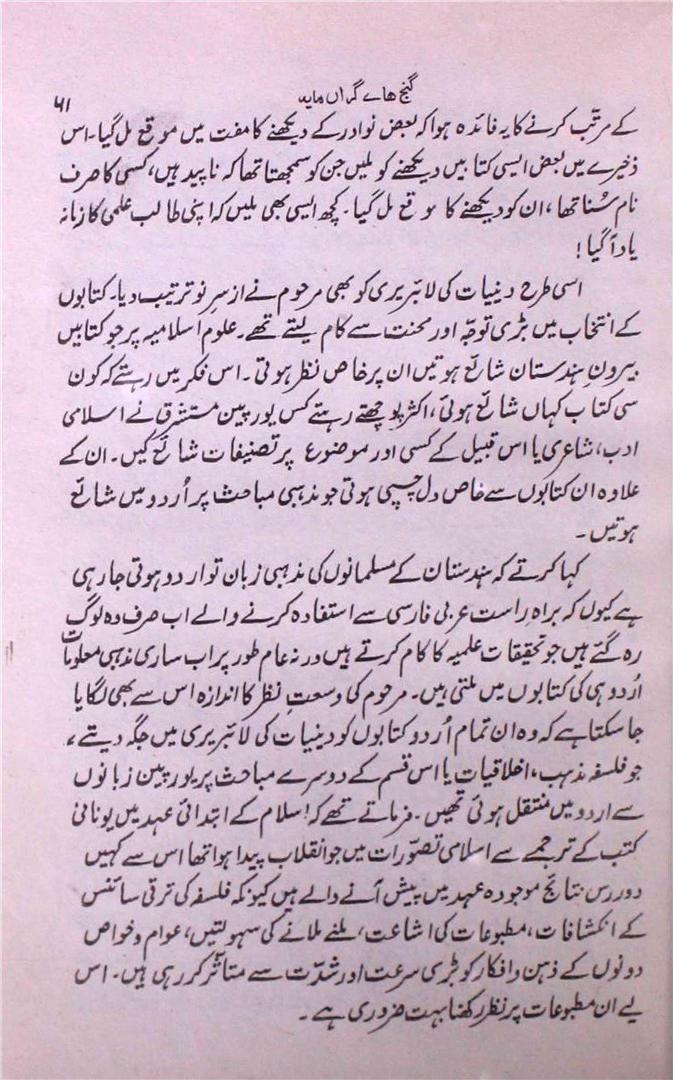 گنج ھاے گراں مایہ
۶۱
کے مرتّب کرنے کا یہ فائدہ ہوا کہ بعض نوادر کے دیکھنے کا مفت میں موقع مل گیا۔ اس
ذخیرے میں بعض ایسی کتابیں دیکھنے کو ملیں جن کو سمجھتا تھا کہ ناپید ہیں، کسی کا صرف
نام سُنا تھا، ان کو دیکھنے کا موقع مل گیا۔ کچھ ایسی بھی ملیں کہ اپنی طالب علمی کا زمانہ
یاد آگیا!
اسی طرح دینیات کی لائبریری کو بھی مرحوم نے از سرِ نو ترتیب دیا۔ کتابوں
کے انتخاب میں بڑی توجّہ اور محنت سے کام لیتے تھے۔ علوم اسلامیہ پر جو کتابیں
بیرونِ ہندستان شائع ہوتیں ان پر خاص نظر ہوتی۔ اس فکر میں رہتے کہ کون
سی کتاب کہاں شائع ہوئی، اکثر پوچھتے رہتے کس یورپین مستشرق نے اسلامی
ادب، شاعری یا اس قبیل کے کسی اور موضوع پر تصنیفات شائع کیں۔ ان کے
علاوہ ان کتابوں سے خاص دل چسپی ہوتی جو مذہبی مباحث پر اُردو میں شائع
ہوتیں۔
کہا کرتے کہ ہندستان کے مسلمانوں کی مذہبی زبان تو اردو ہوتی جا رہی
ہے کیوں کہ براہِ راست عربی فارسی سے استفادہ کرنے والے اب صرف وہ لوگ
رہ گئے ہیں جو تحقیقات علمیہ کا کام کرتے ہیں ورنہ عام طور پر اب ساری مذہبی معلومات
اُردو ہی کی کتابوں میں ملتی ہیں۔ مرحوم کی وسعتِ نظر کا اندازہ اس سے بھی لگایا
جا سکتا ہے کہ وہ ان تمام اُردو کتابوں کو دینیات کی لائبریری میں جگہ دیتے،
جو فلسفہ مذہب، اخلاقیات یا اس قسم کے دوسرے مباحث پر یورپین زبانوں
سے اردو میں منتقل ہوئی تھیں۔ فرماتے تھے کہ اسلام کے ابتدائی عہد میں یونانی
کتب کے ترجمے سے اسلامی تصوّرات میں جو انقلاب پیدا ہوا تھا اس سے کہیں
دور رس نتائج موجودہ عہد میں پیش آنے والے ہیں کیونکہ فلسفہ کی ترقی سائنس
کے انکشافات، مطبوعات کی اشاعت، ملنے ملانے کی سہولتیں، عوام و خواص
دونوں کے ذہن و افکار کو بڑی سرعت اور شدّت سے متاثر کر رہی ہیں۔ اس
لیے ان مطبوعات پر نظر رکھنا بہت ضروری ہے۔